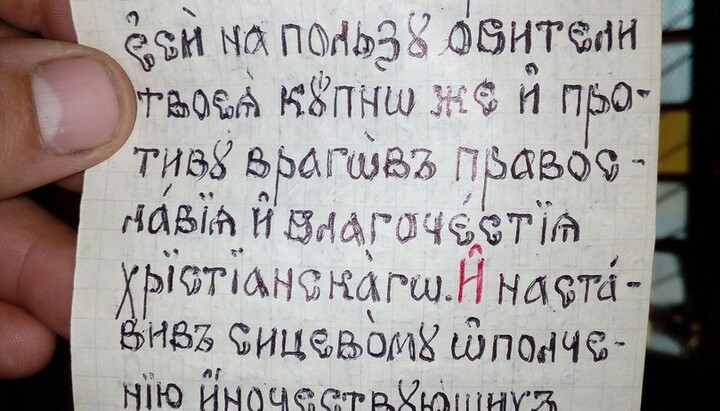 є҆сѝ на пользꙋ ѻ҆бители
твоеѧ̀ кꙋпнѡ же и҆ про-
тивꙋ врагѡ́въ правос-
ла́вїѧ и҆ благоче́стїѧ
хрїстїанска̀гѡ. И҆ наста́-
вивъ сицево̀мꙋ ѡ҆полче-
нїю и҆ночествꙋющихъ